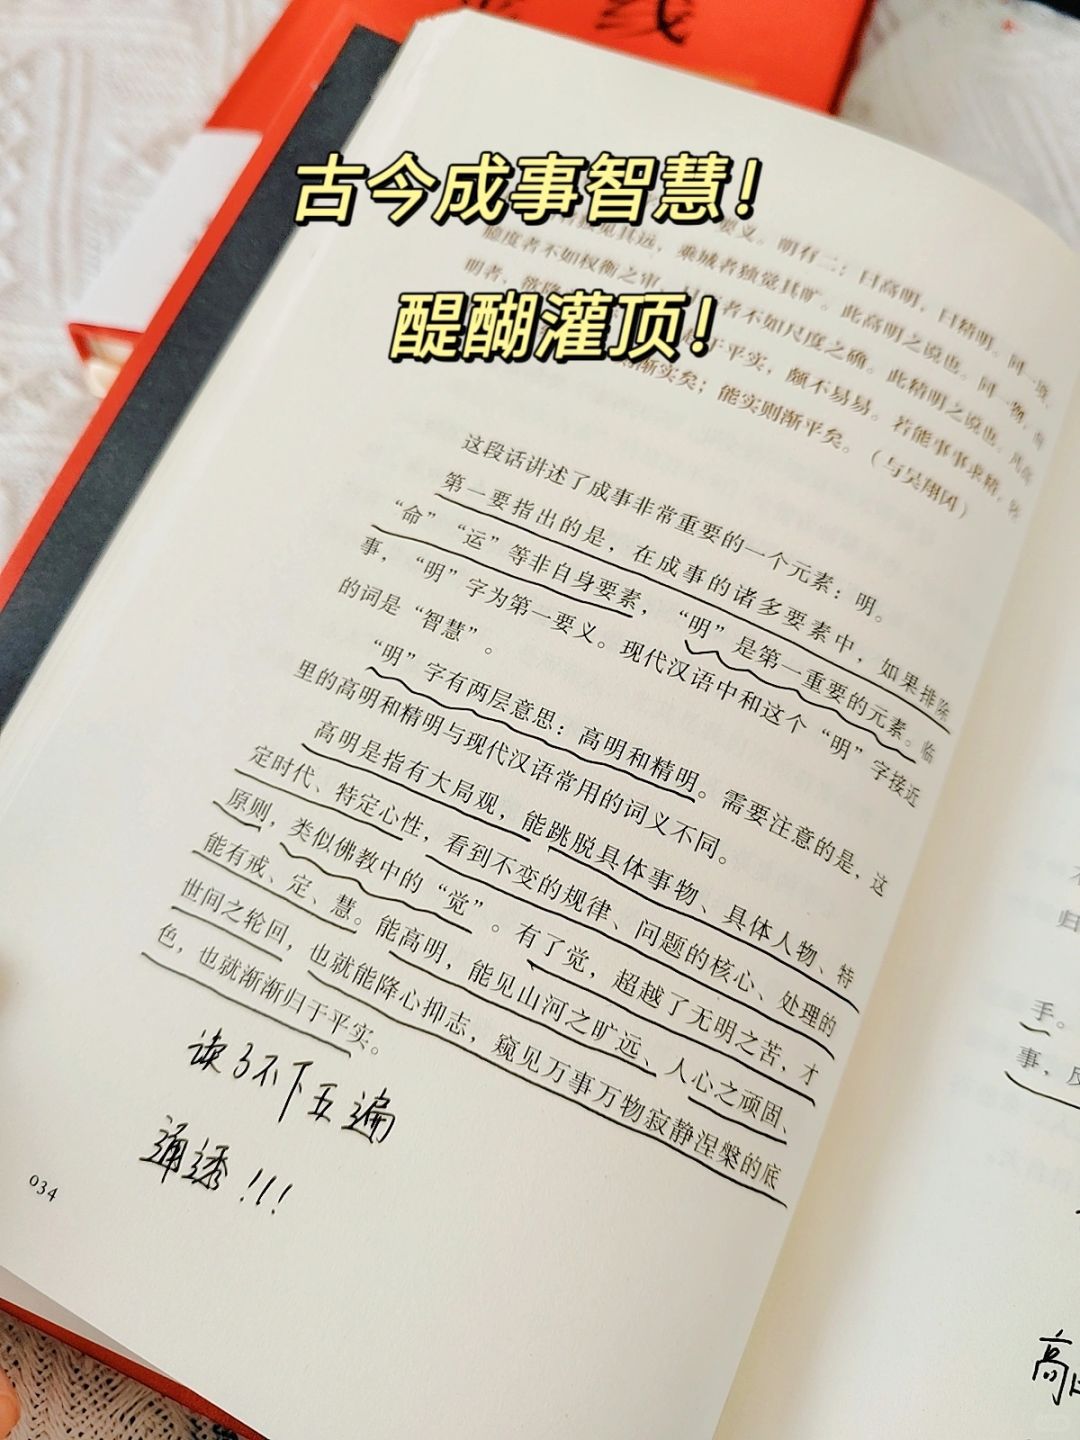 线
古今成事智慧！
醍醐灌顶！
要义。明有二：曰高明，曰精明。同一境，
独见其远，乘城者独觉其旷。此高明之说也。同一物，而
臆度者不如权衡之审，者不如尺度之确。此精明之说也。凡高
明者，欲降于平实，颇不易易。若能事事求精，
则渐实矣；能实则渐平矣。（与吴翔冈）
这段话讲述了成事非常重要的一个元素：明。
第一要指出的是，在成事的诸多要素中，如果排除
“命”“运”等非自身要素，“明”是第一重要的元素。临
事，“明”字为第一要义。现代汉语中和这个“明”字接近
的词是“智慧”。
“明”字有两层意思：高明和精明。需要注意的是，这
里的高明和精明与现代汉语常用的词义不同。
高明是指有大局观，能跳脱具体事物、具体人物、特
定时代、特定心性，看到不变的规律、问题的核心、处理的
原则，类似佛教中的“觉”。有了觉，超越了无明之苦，才
能有戒、定、慧。能高明，能见山河之旷远、人心之顽固、
世间之轮回，也就能降心抑志，窥见万事万物寂静涅槃的底
色，也就渐渐归于平实。
读了不下五遍
通透！!!
034
归
手。
事，反
高